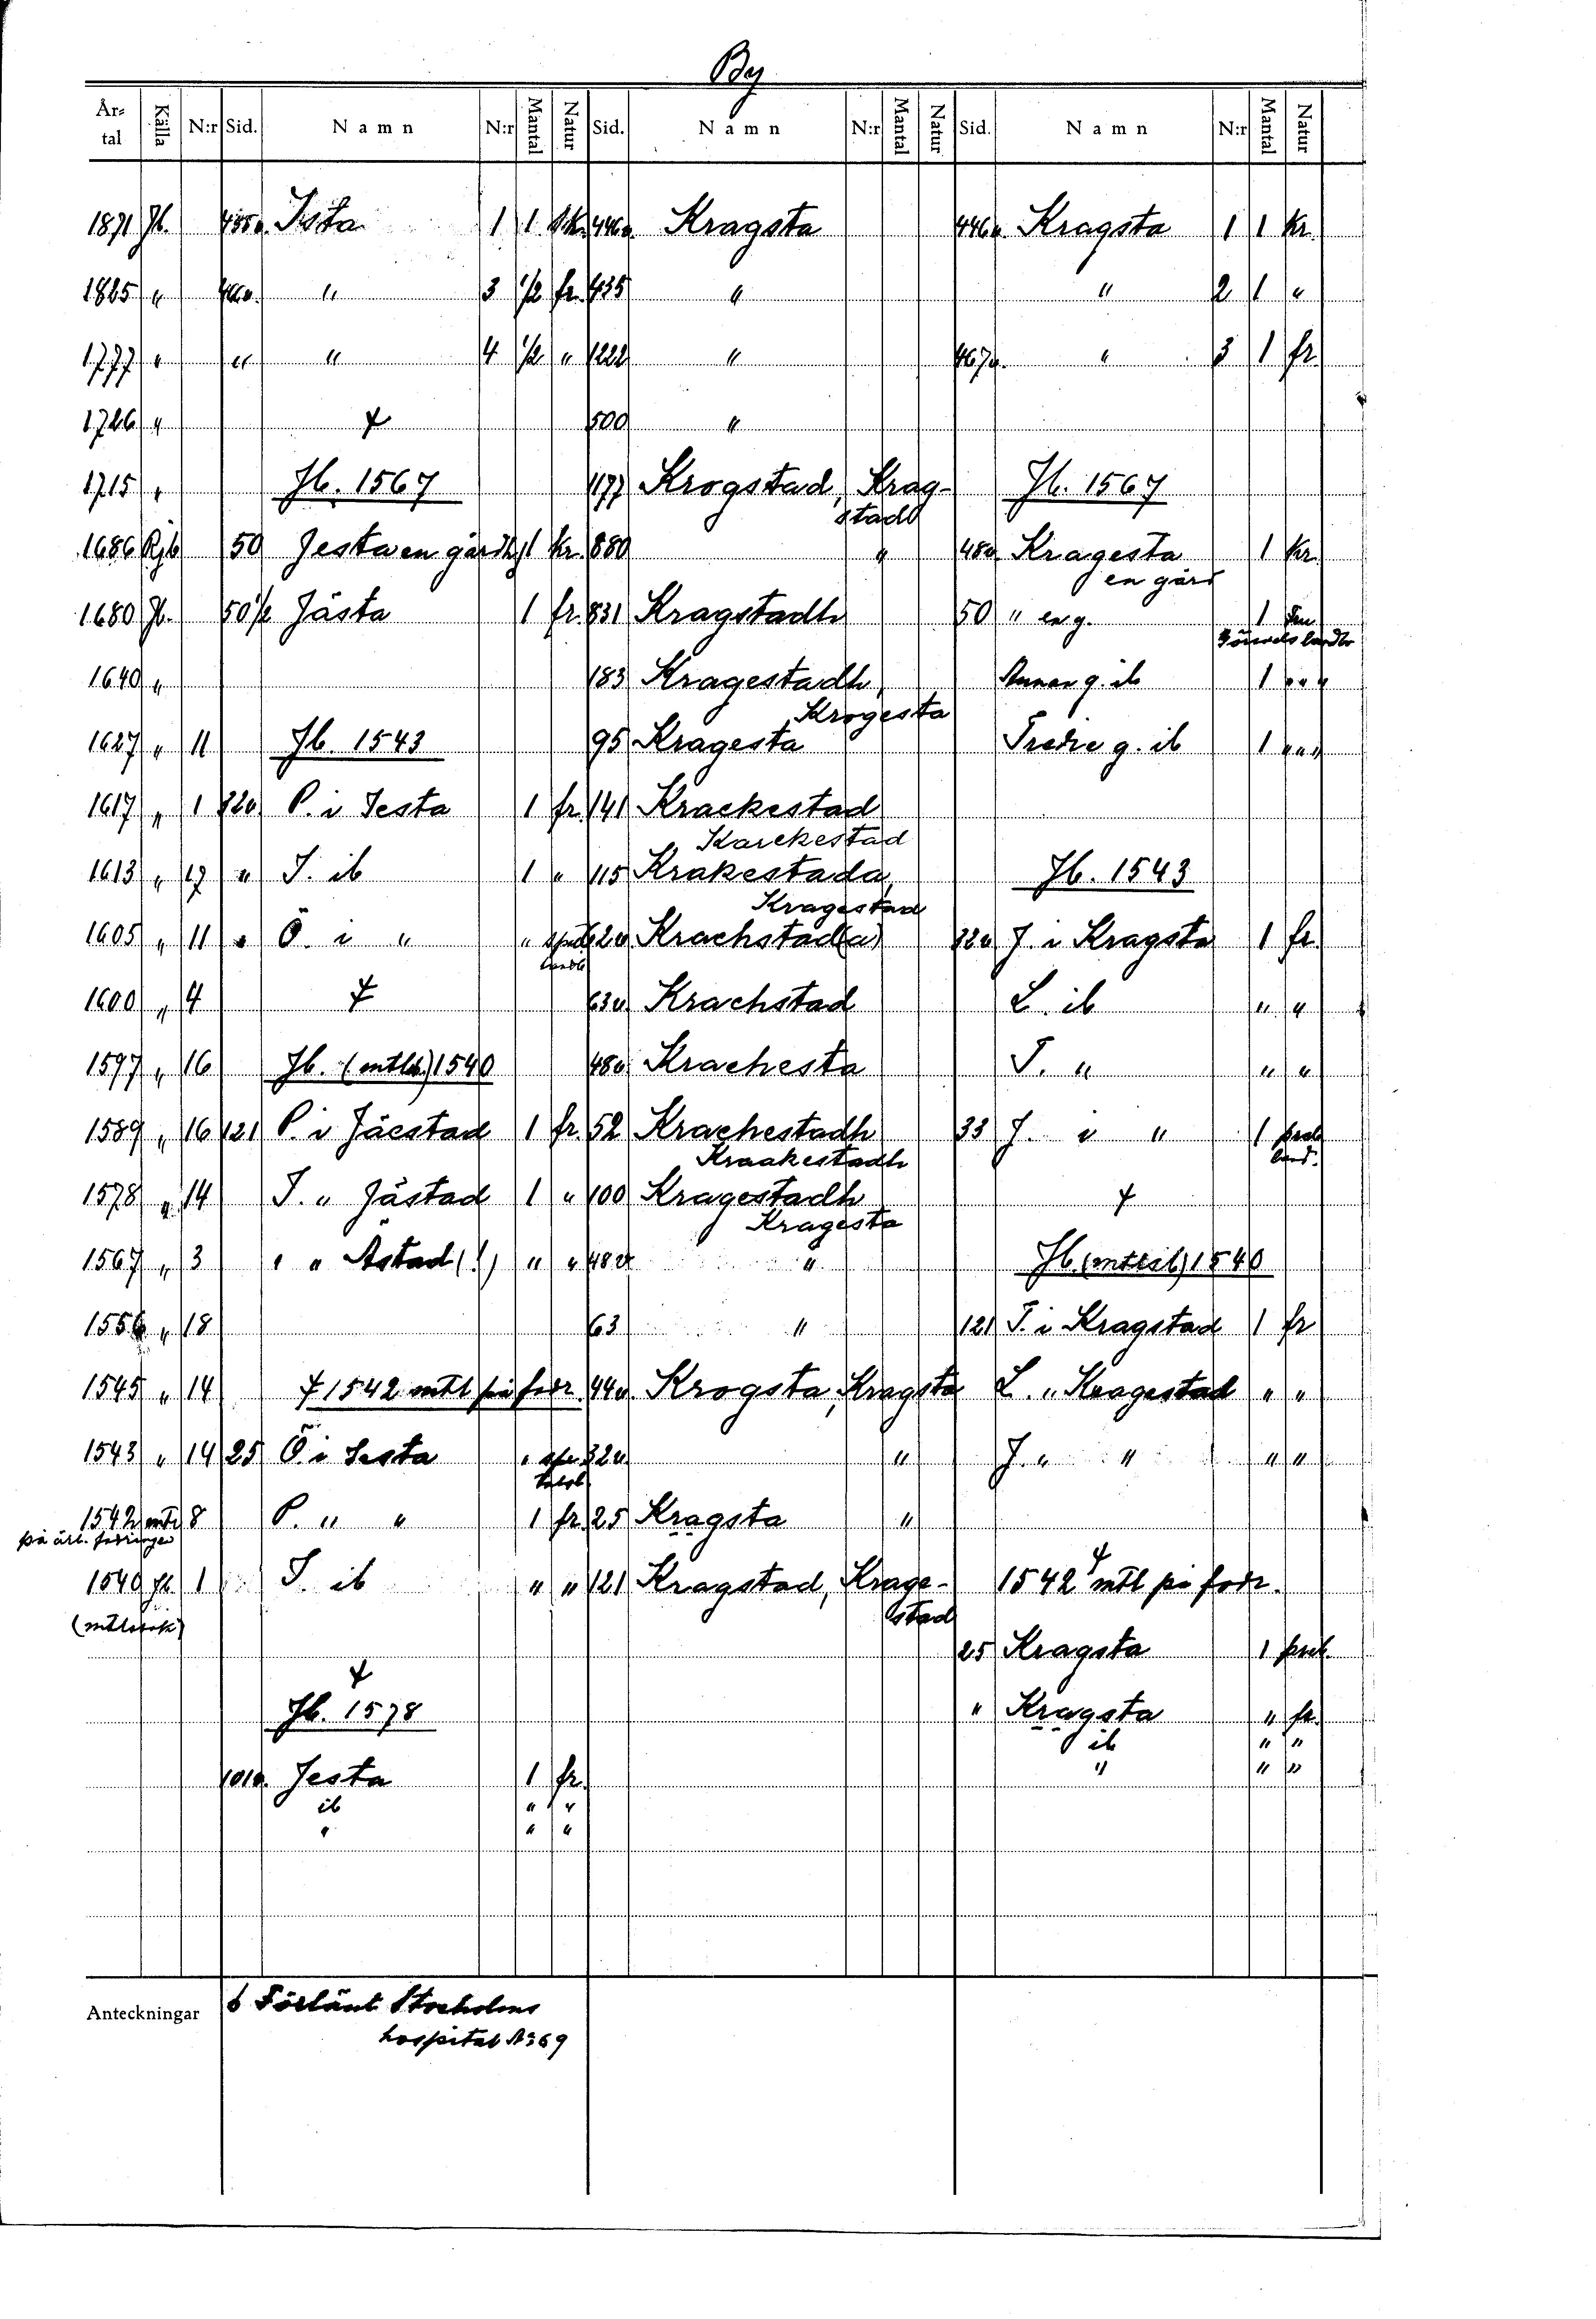 By
År-tal Källa N:r Sid. Namn N:r Mantal Natur Sid. Namn N:r Mantal Natur Sid. Namn N:r Mantal Natur
1871 Jb. Ista 1 1 446 Kragsta 446 Kragsta 1 1 kr.
1825 " " 3 1/2 fr. 435 " " 2 1 "
1777 " " " 4 1/2 " 1222 " 467 " 3 1 fr.
1726 " 500 "
1715 " Jb. 1567 1177 Krogstad, Krag- Jb. 1567
stadh
1686 Rjb 50 Jesta en gårdh 1 kr. 880 " 48 Kragesta 1 kr.
en gård
1680 Jb. 50 1/2 Jästa 1 fr. 831 Kragstadh 50 " en g. 1
1640 " 183 Kragestadh, Annar g. ib 1 " "
Krogesta
1627 " 11 Jb. 1543 95 Kragesta Tredie g. ib 1 " "
1617 " 1 32 P. i Iesta 1 fr. 141 Krackestad
Karckestad
1613 " 17 " I. ib 1 " 115 Krakestada, Jb. 1543
Kragestad
1605 " 11 " Ö. i " " 62 Krachstad(a) 32 J. i Kragsta 1 fr.
1600 " 4 63 Krachstad L. ib " "
1597 " 16 Jb. (mtlb.) 1540 48 Krachesta T. " " "
1589 " 16 121 P. i Jäestad 1 fr. 52 Krachestadh 33 J. i " 1
Kraakestadh
1578 " 14 I. " Jästad 1 " 100 Kragestadh
Kragesta
1567 " 3 " " Åstad (!) " " 48 " Jb. 1540
1556 " 18 63 " 121 T. i Kragstad 1 fr
1545 " 14 1542 mtl på fodr. 44 Krogsta, Kragsta L. " Kragestad " "
1543 " 14 25 Ö. i Iesta " 32 " J. " " " "
1542 8 P. " " 1 fr. 25 Kragsta "
1540 Jb. 1 I. ib " " 121 Kragstad, Krage- 1542 mtl på fodr.
stad
25 Kragsta 1
Jb. 1578 " Kragsta " fr.
ib " "
101 Jesta 1 fr. " " "
ib " "
" " "
Anteckningar Förlänt Stockholms
hospital